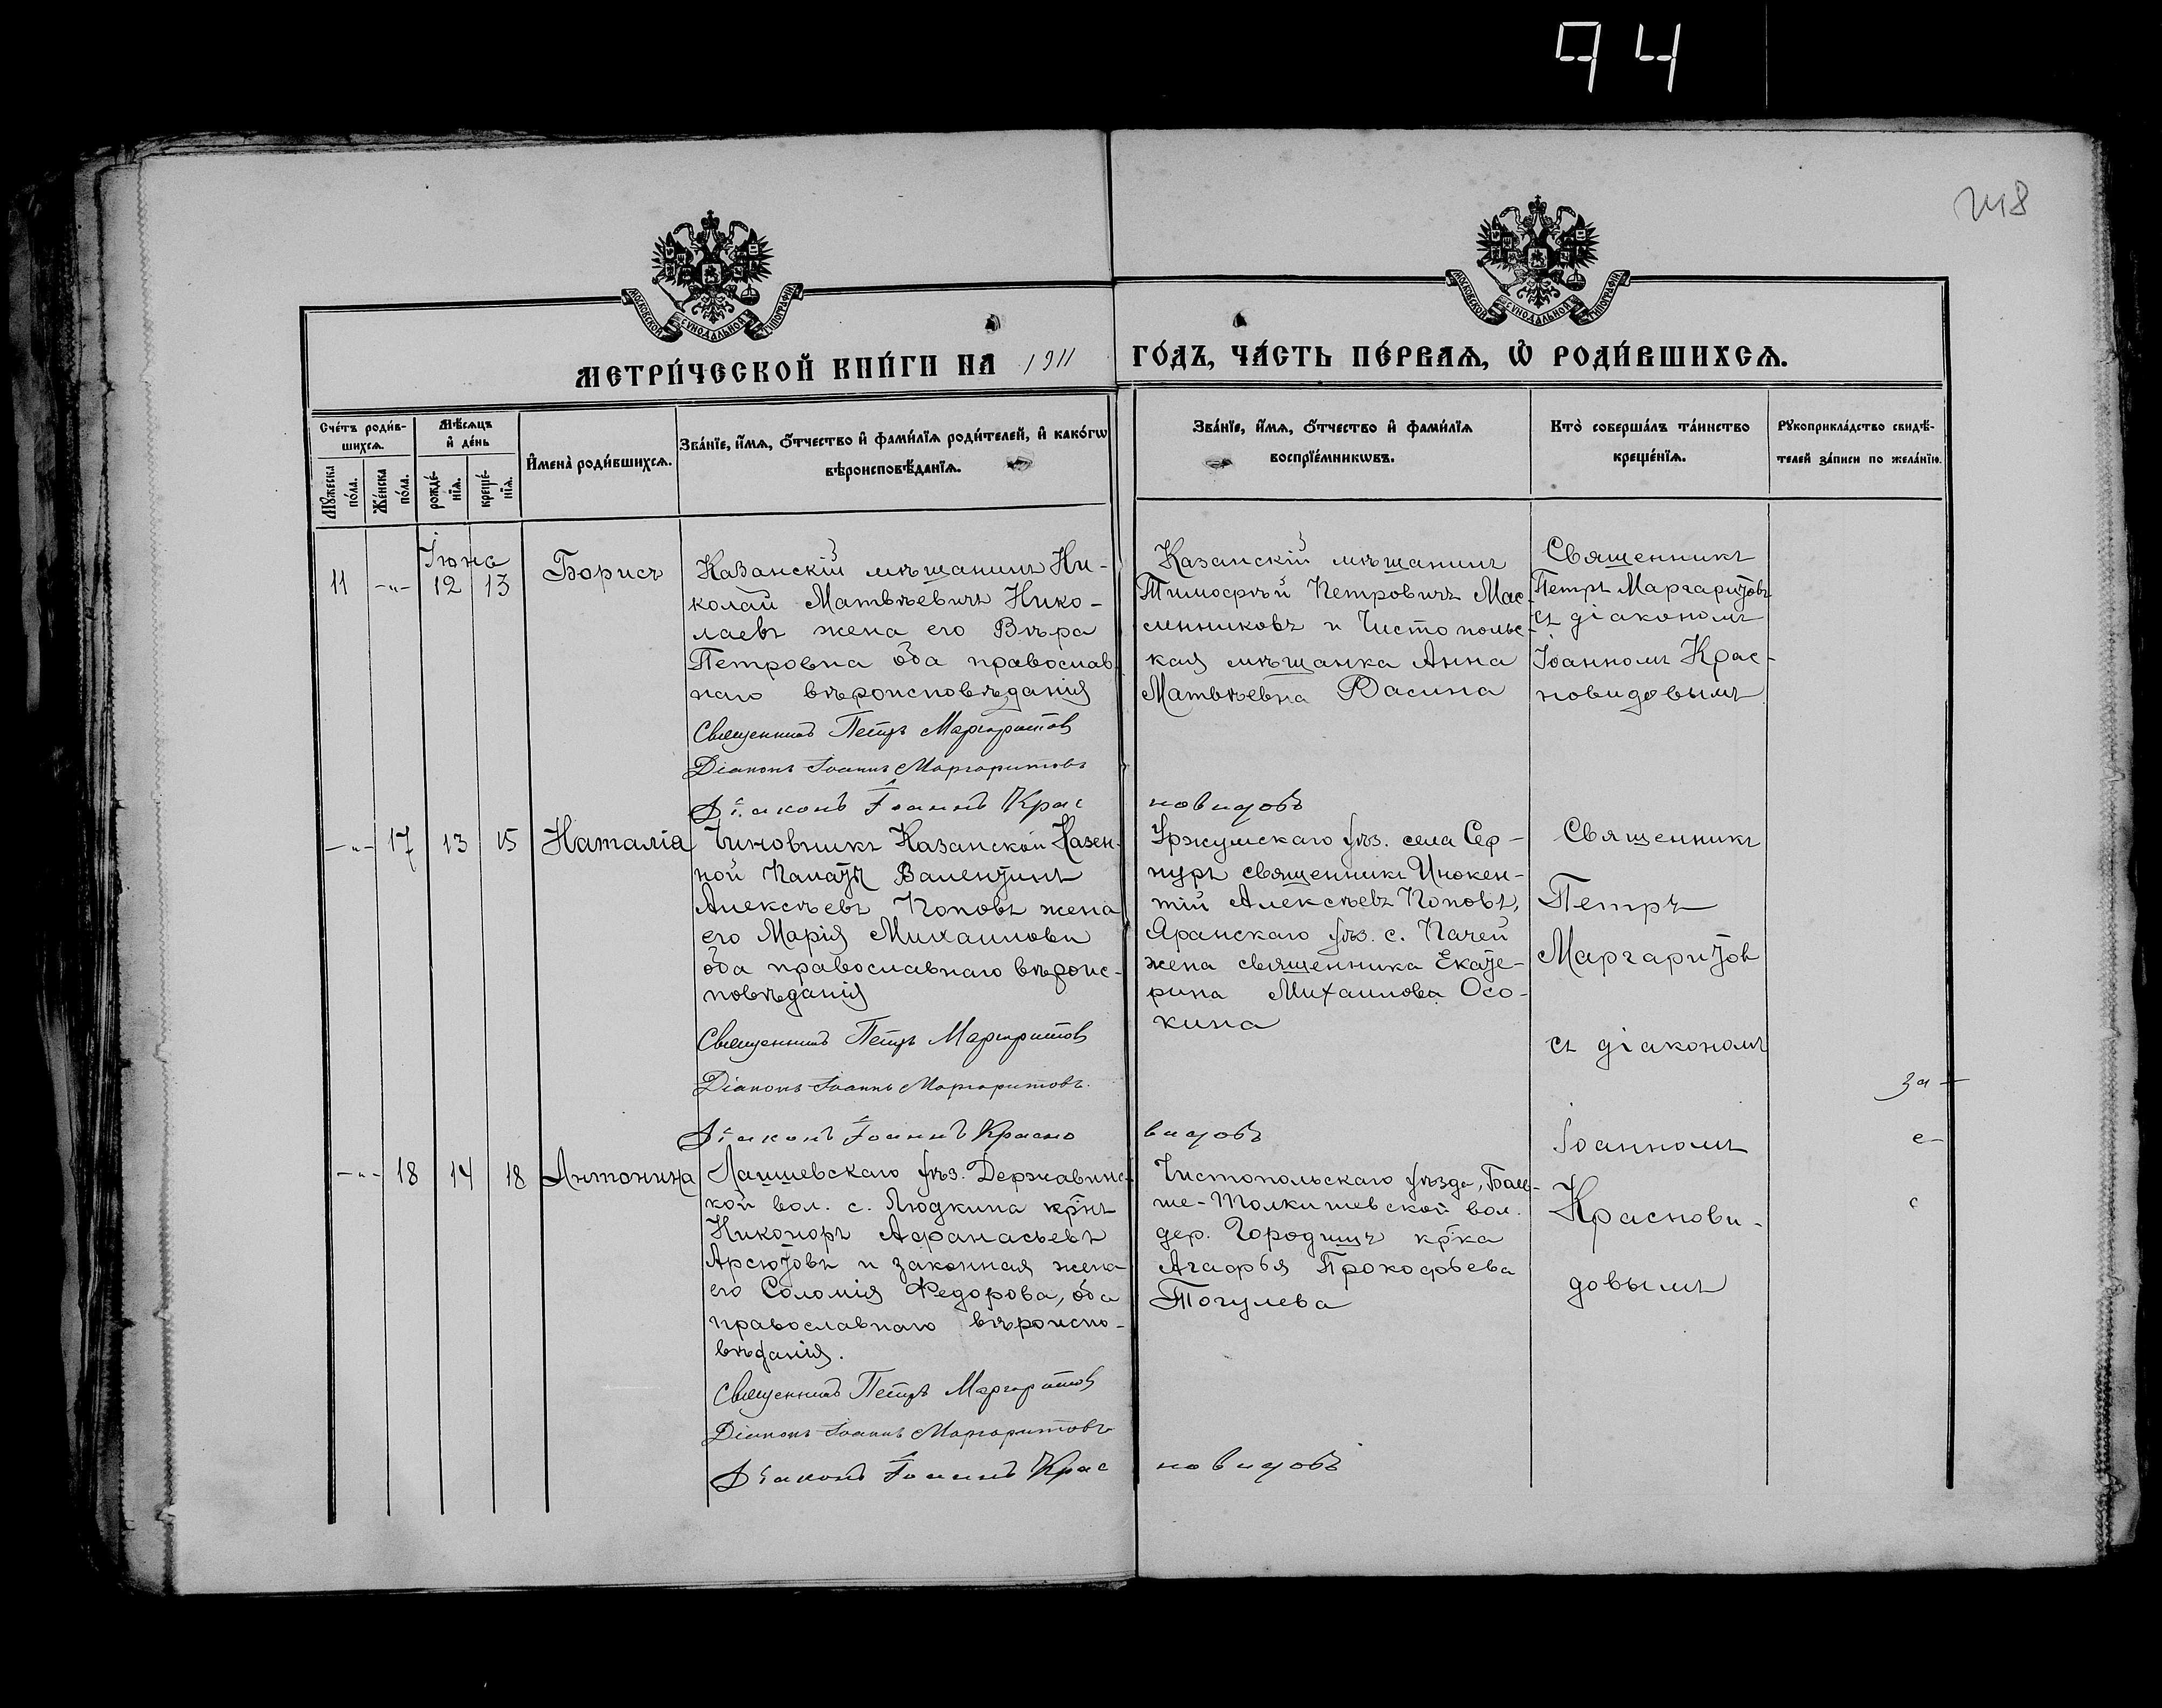 94
248
МОСКОВСКОЙ СѴНОДАЛЬНОЙ ТИПОГРАФІИ
МОСКОВСКОЙ СѴНОДАЛЬНОЙ ТИПОГРАФІИ
МЕТРИ́ЧЕСКОЙ КНИ́ГИ НА 1911 ГО́ДЪ, ЧА́СТЬ ПЕ́РВАѦ, Ѽ РОДИ́ВШИХСѦ.
Сче́тъ роди́в-
шихсѧ.
Мꙋ́жеска по́ла.
Же́нска по́ла.
Мѣ́сѧцъ и҆ де́нь
рожде́-нїѧ.
креще́-нїѧ.
И҆мена̀ роди́вшихсѧ.
Зва́нїе, и҆́мѧ, ѻ҆́тчество и҆ фами́лїѧ роди́телей, и҆ како́гѡ
вѣроисповѣ́данїѧ.
Зва́нїе, и҆́мѧ, ѻ҆́тчество и҆ фами́лїѧ
воспрїе́мникѡвъ.
Кто̀ соверша́лъ та́инство
креще́нїѧ.
Рꙋкоприкла́дство свидѣ́-
телей за́писи по жела́нїю.
Іюня
11 -"- 12 13 Борисъ
Казанскій мѣщанинъ Ни-
колай Матвѣевичъ Нико-
лаевъ жена его Вѣра
Петровна оба православ-
наго вѣроисповѣданія
Священникъ Петръ Маргаритов
Діаконъ Іоаннъ Маргаритовъ
Діаконъ Іоаннъ Красновидовъ
Казанскій мѣщанинъ
Тимофѣй Петровичъ Мас-
ленниковъ и Чистопольс-
кая мѣщанка Анна
Матвѣевна
Священникъ
Петръ Маргаритовъ
съ діакономъ
Іоанномъ Крас-
новидовымъ
-"- 17 13 15 Наталія
Чиновникъ Казанской Казен-
ной Палаты Валентинъ
Алексѣевъ Поповъ жена
его Марія Михаилова
оба православнаго вѣроис-
повѣданія
Священникъ Петръ Маргаритов
Діаконъ Іоаннъ Маргаритовъ.
Діаконъ Іоаннъ Красновидовъ
Уржумскаго уѣз. села Сер-
нуръ священникъ Инокен-
тій Алексѣевъ Поповъ,
Яранскаго уѣз. с. Пачей
жена священника Екате-
рина Михаилова Осо-
кина
Священникъ
Петръ
Маргаритов
съ діакономъ
Іоанномъ
Краснови-
довымъ
за-
е-
с
-"- 18 14 18 Антонина
Лаишевскаго уѣз. Державинс-
кой вол. с. Людкина кр-нъ
Никоноръ Афанасьевъ
Арсютовъ и законная жена
его Соломія Федорова, оба
православнаго вѣроиспо-
вѣданія.
Священникъ Петръ Маргаритов
Діаконъ Іоаннъ Маргаритовъ
Діаконъ Іоаннъ Красновидовъ
Чистопольскаго уѣзда, Боль-
ше-Толкишевской вол.
дер. Городищъ кр-ка
Агафья Прокофьева
Тогулева